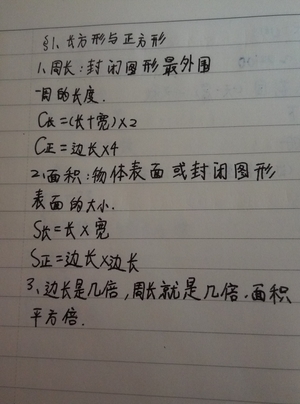 §1、长方形与正方形
1、周长:封闭图形最外围
一周的长度.
C长=(长+宽)×2
C正=边长×4
2、面积:物体表面或封闭图形
表面的大小.
S长=长×宽
S正=边长×边长
3、边长是几倍,周长就是几倍.面积
平方倍.